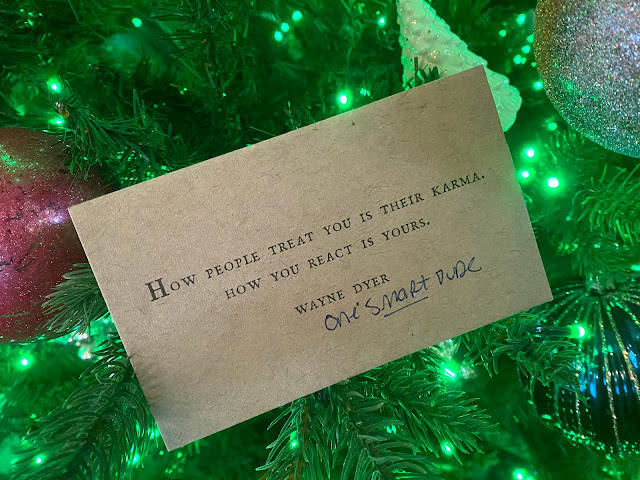 How people treat you is their karma.
how you react is yours.
Wayne Dyer
One smart dude